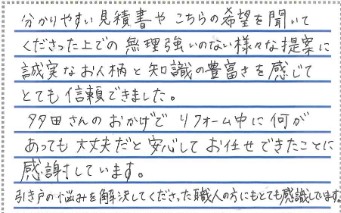 分かりやすい見積書や こちらの希望を聞いて
くださった上での 無理強いのない様々な提案に
誠実なお人柄と知識の豊富さを感じて
とても信頼できました。
多田さんのおかげで リフォーム中に何が
あっても大丈夫だと安心してお任せできたことに
感謝しています。
引き戸の悩みを解決してくださった職人の方にもとても感謝しています。